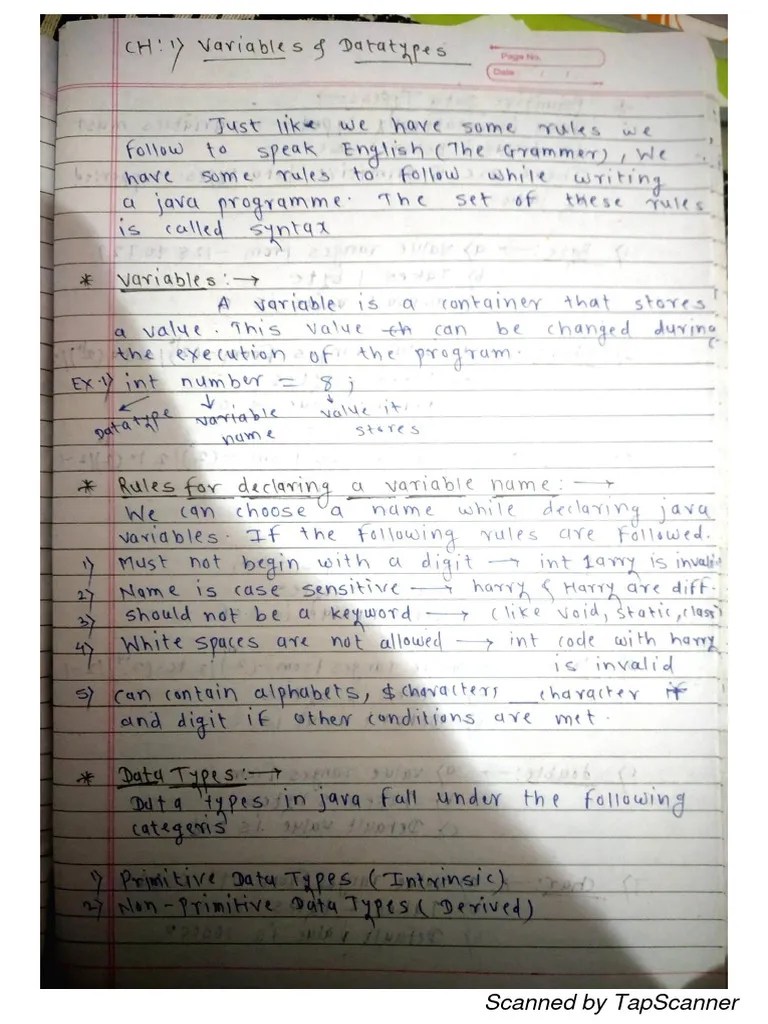 CH:1) Variables & Datatypes
Page No.
Date
Just like we have some rules we
follow to speak English (The Grammer), We
have some rules to follow while writing
a java programme. The set of these rules
is called syntax
* Variables:→
A variable is a container that stores
a value. This value can be changed during
the execution of the program.
EX.1) int number = 8;
Datatype variable value it
name stores
* Rules for declaring a variable name:→
We can choose a name while declaring java
variables. If the following rules are followed.
1) Must not begin with a digit → int 1arry is invalid
2) Name is case sensitive → harry & Harry are diff.
3) should not be a keyword → (like void, static, class
4) White spaces are not allowed → int code with harry
is invalid
5) can contain alphabets, $ character, _ character
and digit if other conditions are met.
* Data Types:→
Data types in java fall under the following
categeris
1) Primitive Data Types (Intrinsic)
2) Non-Primitive Data Types (Derived)
Scanned by TapScanner